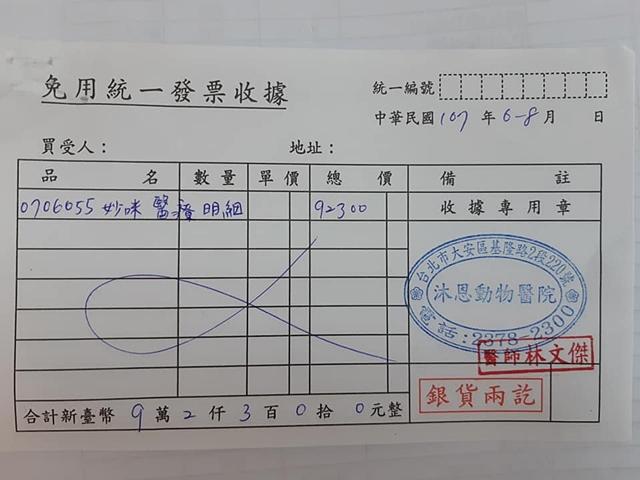 免用統一發票收據
統一編號
中華民國107年6-8月 日
買受人: 地址:
品名 數量 單價 總價 備註
0706055 妙咪 醫療明細 92300 收據專用章
台北市大安區基隆路2段220號
沐恩動物醫院
電話:2378-2300
醫師林文傑
銀貨兩訖
合計新臺幣 9萬2仟3百0拾0元整